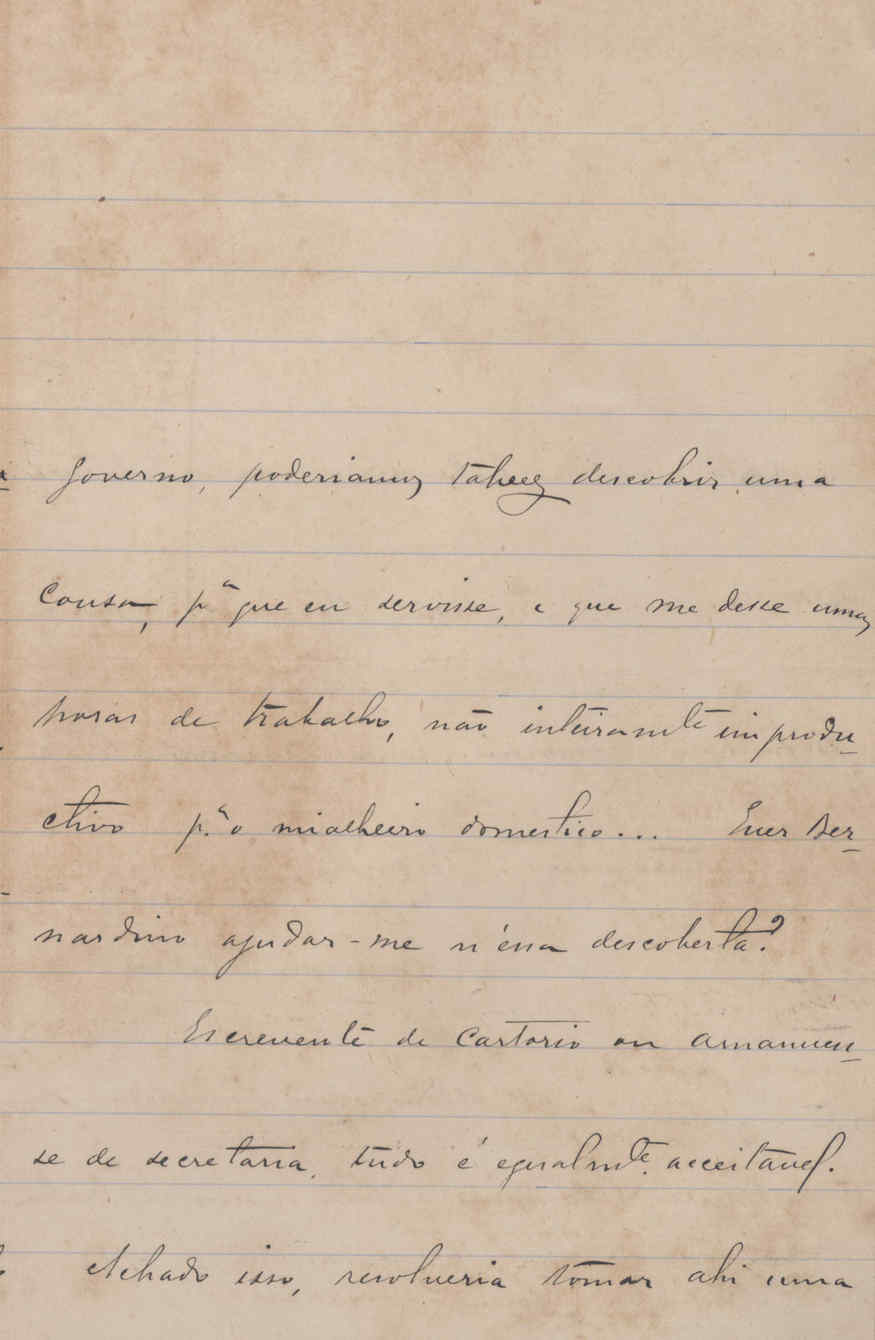 governo, poderiamos talvez descobrir uma
cousa, pª que eu servisse, e que me desse umas
horas de trabalho, não inteiramte improdu-
ctivo p.ª o mialheiro domestico... Quer Ber-
nardino ajudar-me n'essa descoberta?
Escrevente de cartorio ou amanuen-
se de secretaria, tudo é egualmte. acceitavel.
Achado isso, resolveria tomar ahi uma